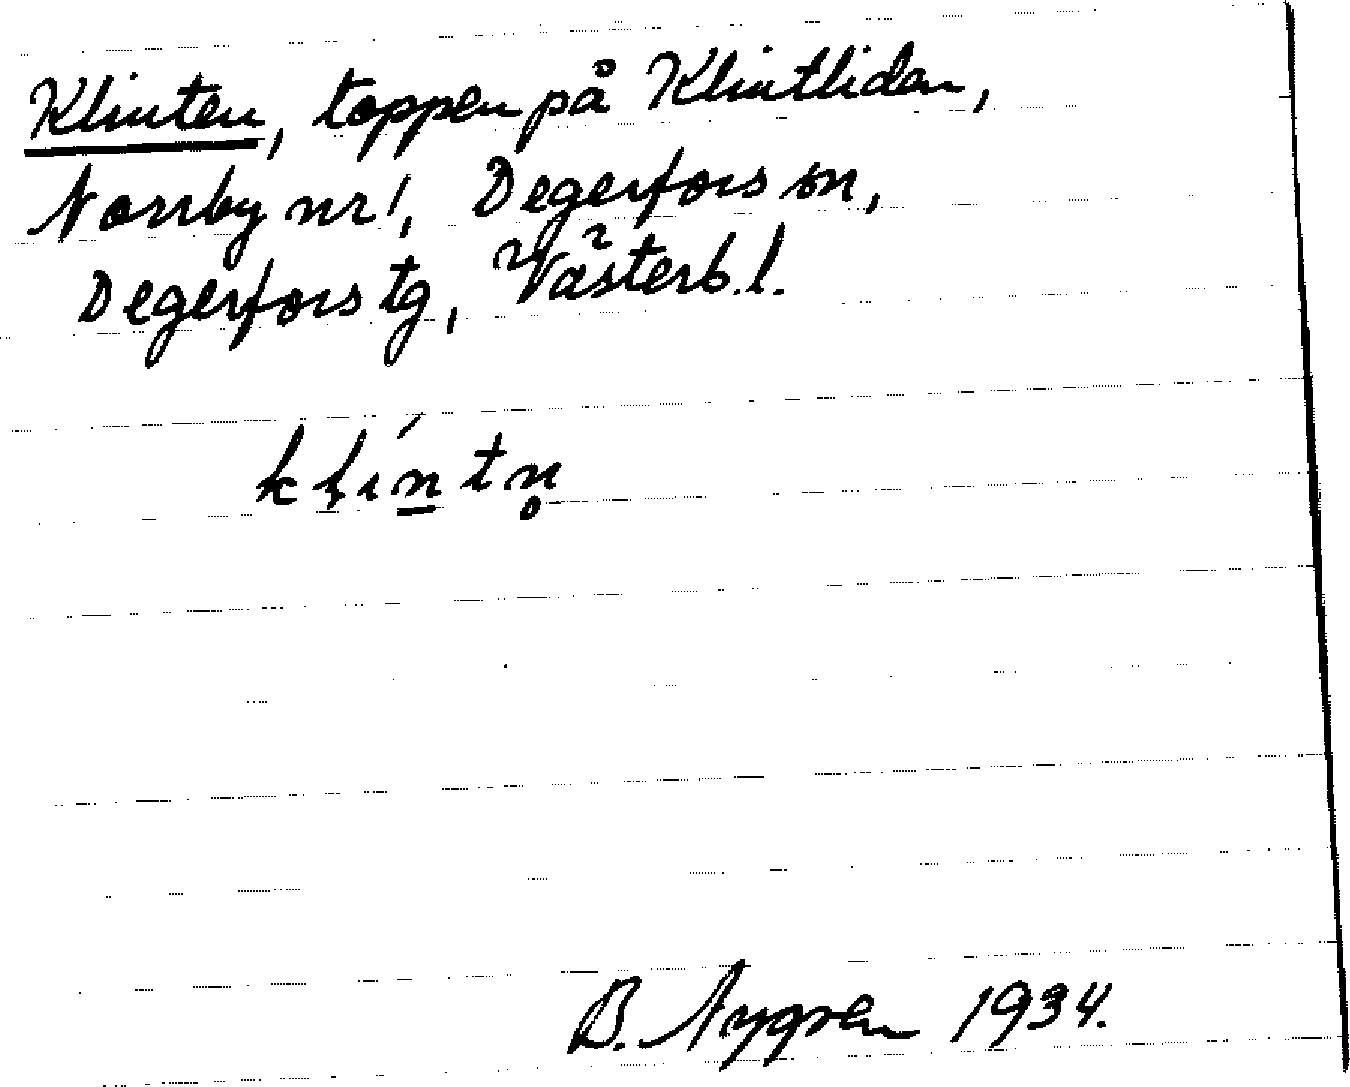 Klinten, toppen på Klintlidan,
Norrby nr 1, Degerfors sn,
Degerfors tg, Västerb. l.
klín̲tn̥
B. Nygren 1934.